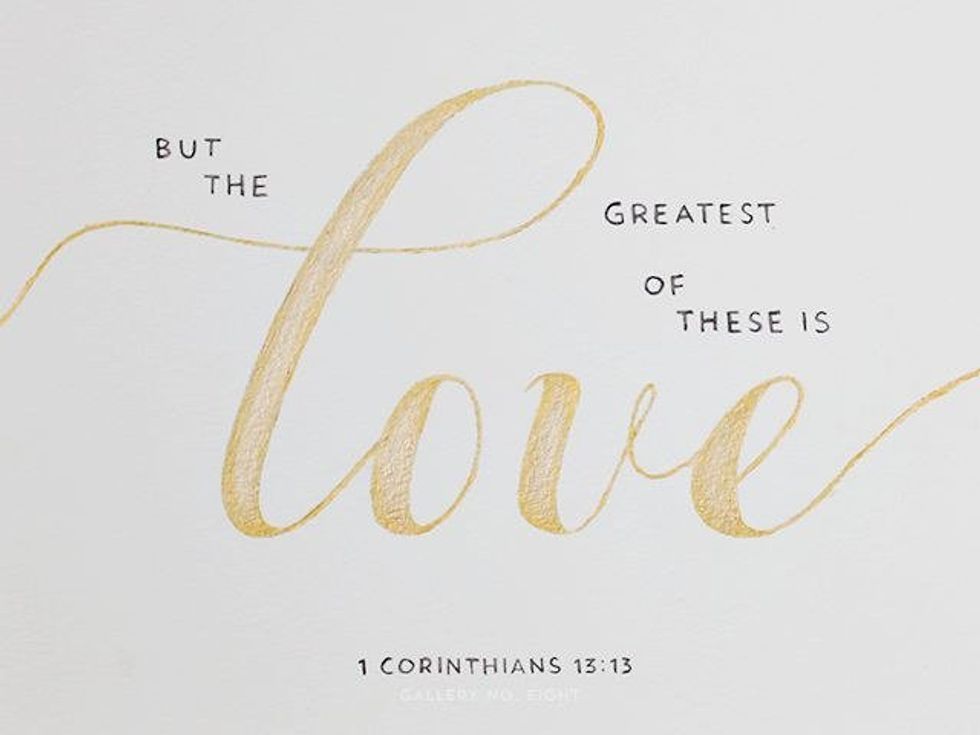 BUT
THE
GREATEST
OF
THESE IS
love
1 CORINTHIANS 13:13
GALLERY NO. EIGHT